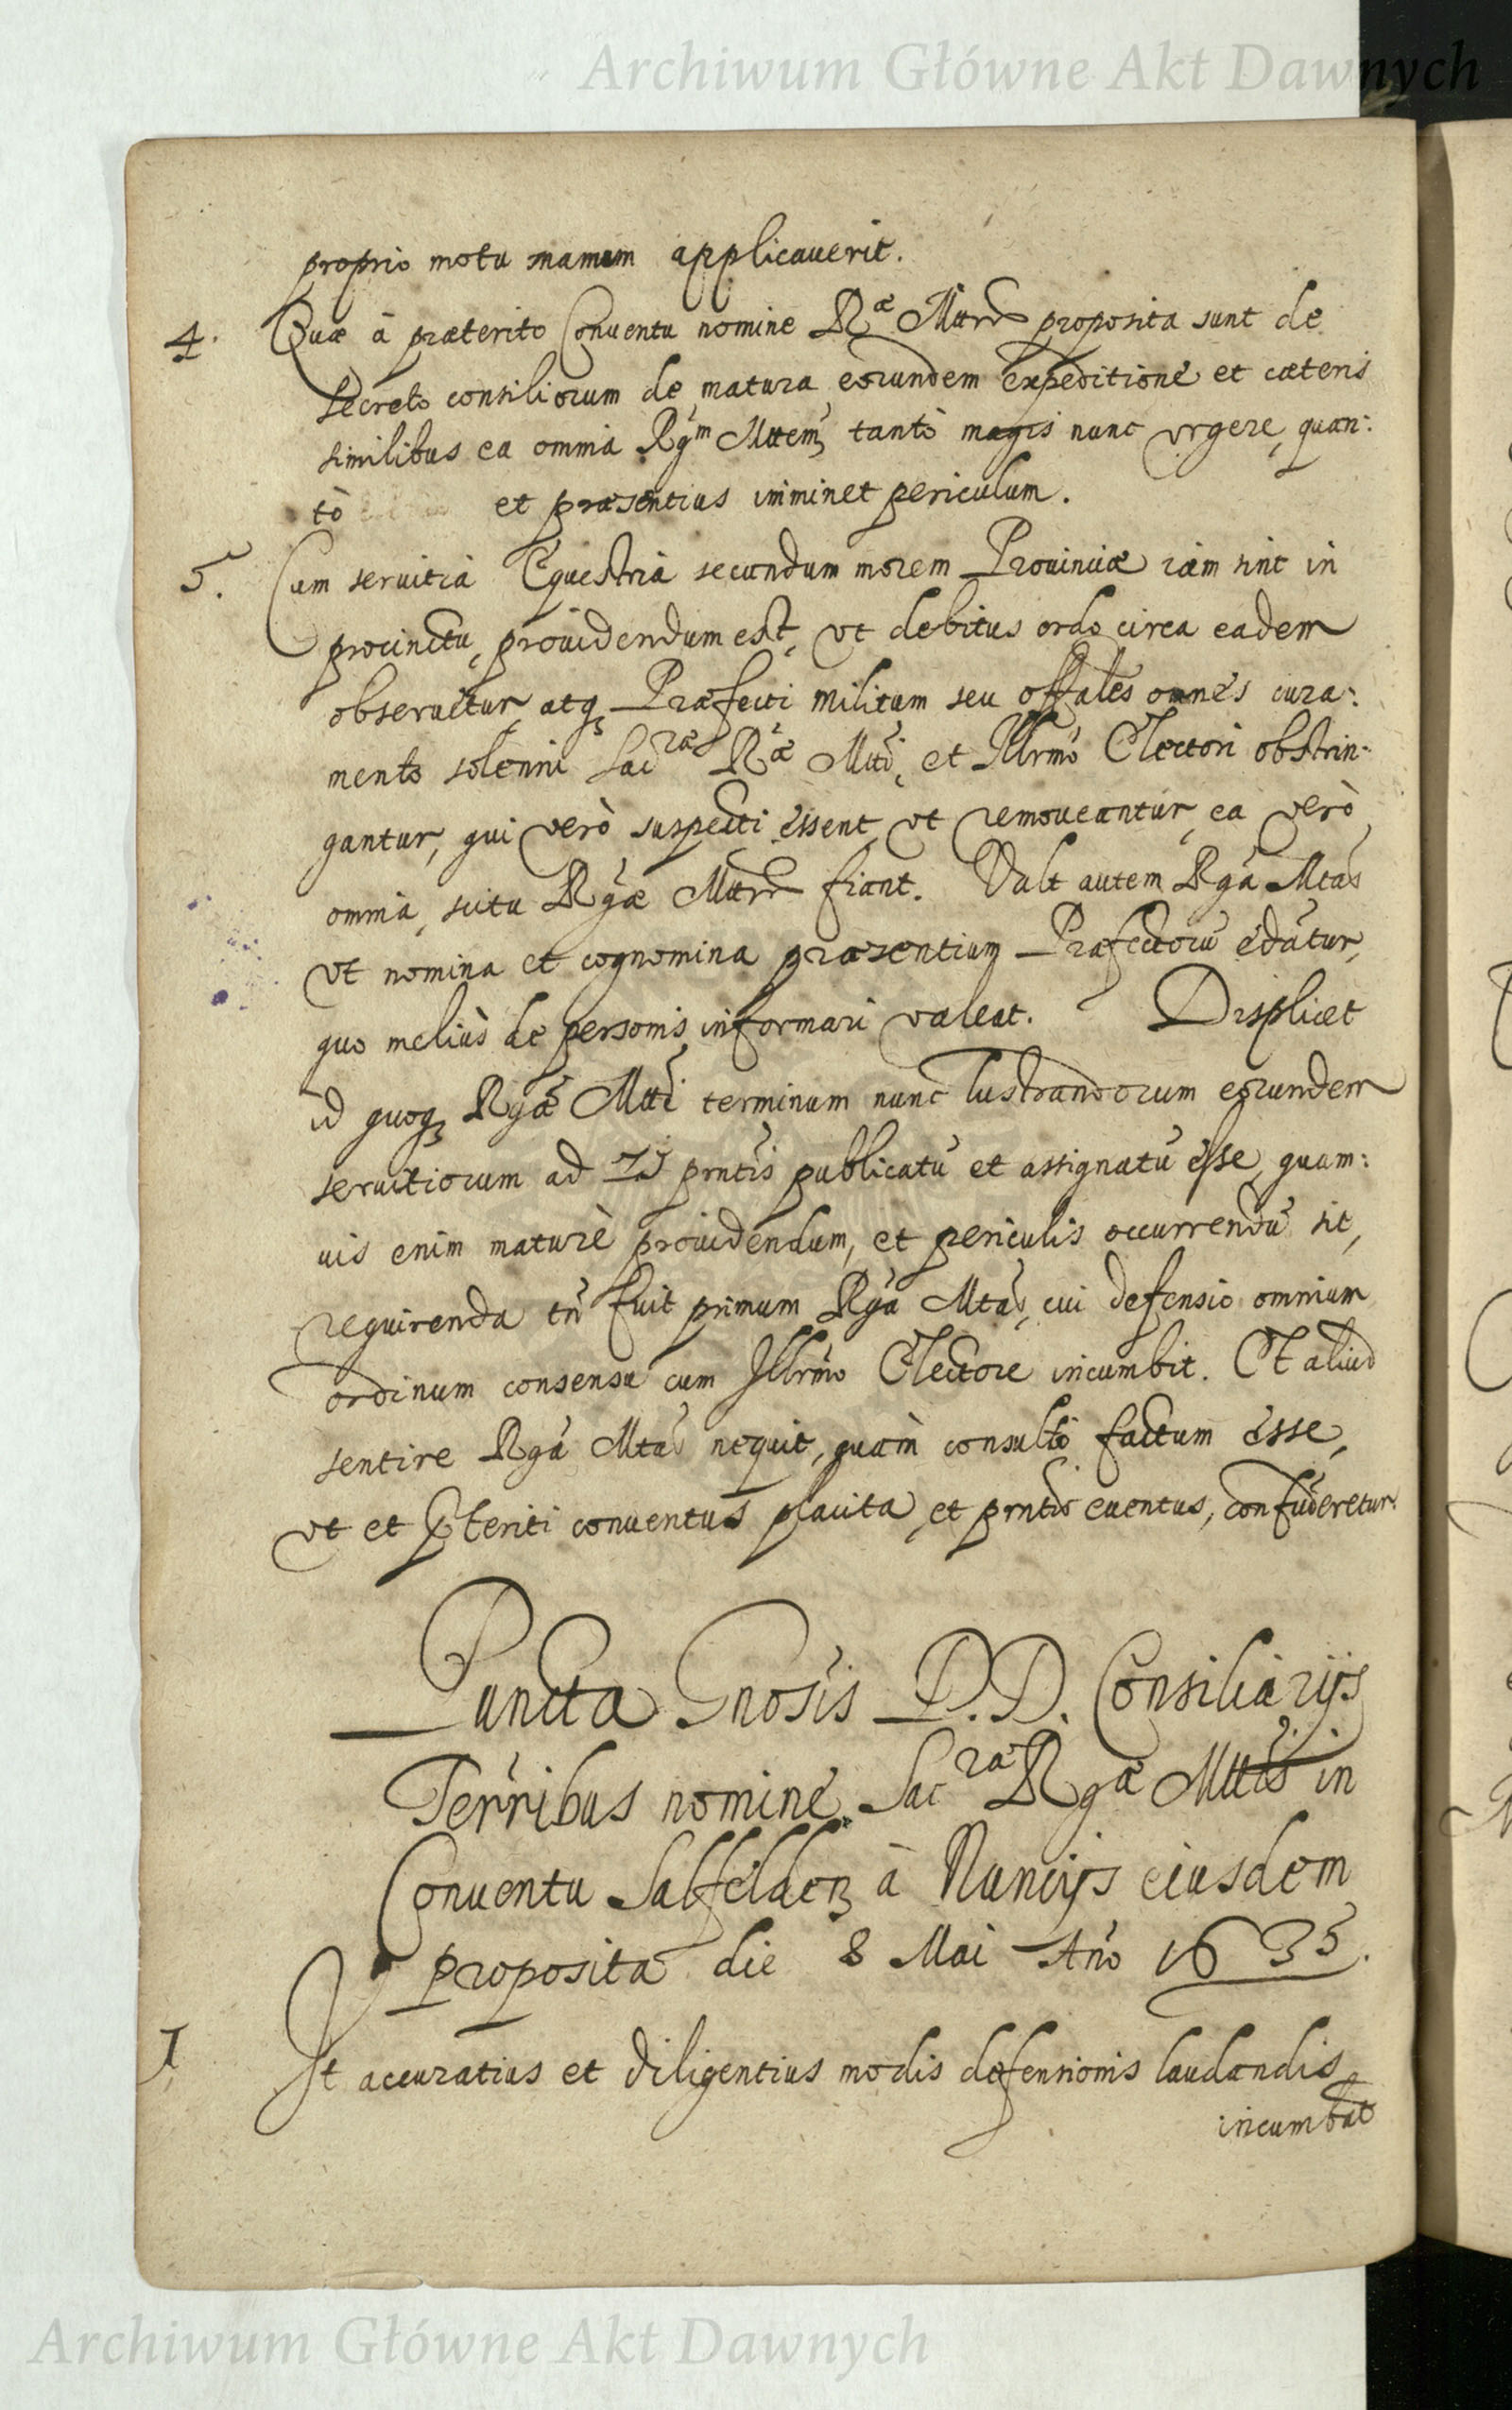 Archiwum Główne Akt Dawnych
proprio motu manum applicauerit.
4. Quæ à præterito Conuentu nomine Ræ Mttis proposita sunt de
secreto consiliorum de matura eorundem expeditione et cæteris
similibus ea omnia Rgm Mttem tantò magis nunc vrgere, quan:
tò et præsentius imminet periculum.
5. Cum seruitia Equestria secundum morem Prouinciæ iam sint in
procinctu, prouidendum est, vt debitus ordo circa eadem
obseruetur atq Præfecti militum seu offales omnes iura:
mento solenni Sacræ Ræ Mtti, et Illrmo Electori obstrin:
gantur, qui verò suspecti essent vt remoueantur, ea verò
omnia, scitu Rgæ Mttis fiant. Vult autem Rga Mtas
vt nomina et cognomina præsentium Præfectorū edātur,
quo meliùs de personis informari valeat. Displicet
id quoq Rgæ Mtti terminum nunc lustrandorum eorundem
seruitiorum ad 15 prntis publicatū et assignatū esse, quam:
uis enim maturè prouidendum, et periculis occurrendū sit,
requirenda tn fuit primum Rga Mtas, cui defensio omnium
ordinum consensu cum Illrmo Electore incumbit. Et aliud
sentire Rga Mtas nequit, quàm consultò factum esse,
vt et pteriti conuentus placita, et prntis euentus, confūderetur.
Puncta Gnosis D.D. Consiliarijs
Terribus nomine Sacræ Rgæ Mttis in
Conuentu Salfelden à Nuncijs eiusdem
proposita die 8 Mai Año 1635.
1 Vt accuratius et diligentius modis defensionis laudandis
incumbāt
Archiwum Główne Akt Dawnych